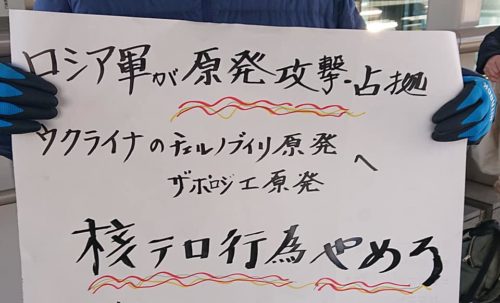 ロシア軍が原発攻撃・占拠
ウクライナのチェルノブイリ原発へ
ザポロジエ原発
核テロ行為やめろ